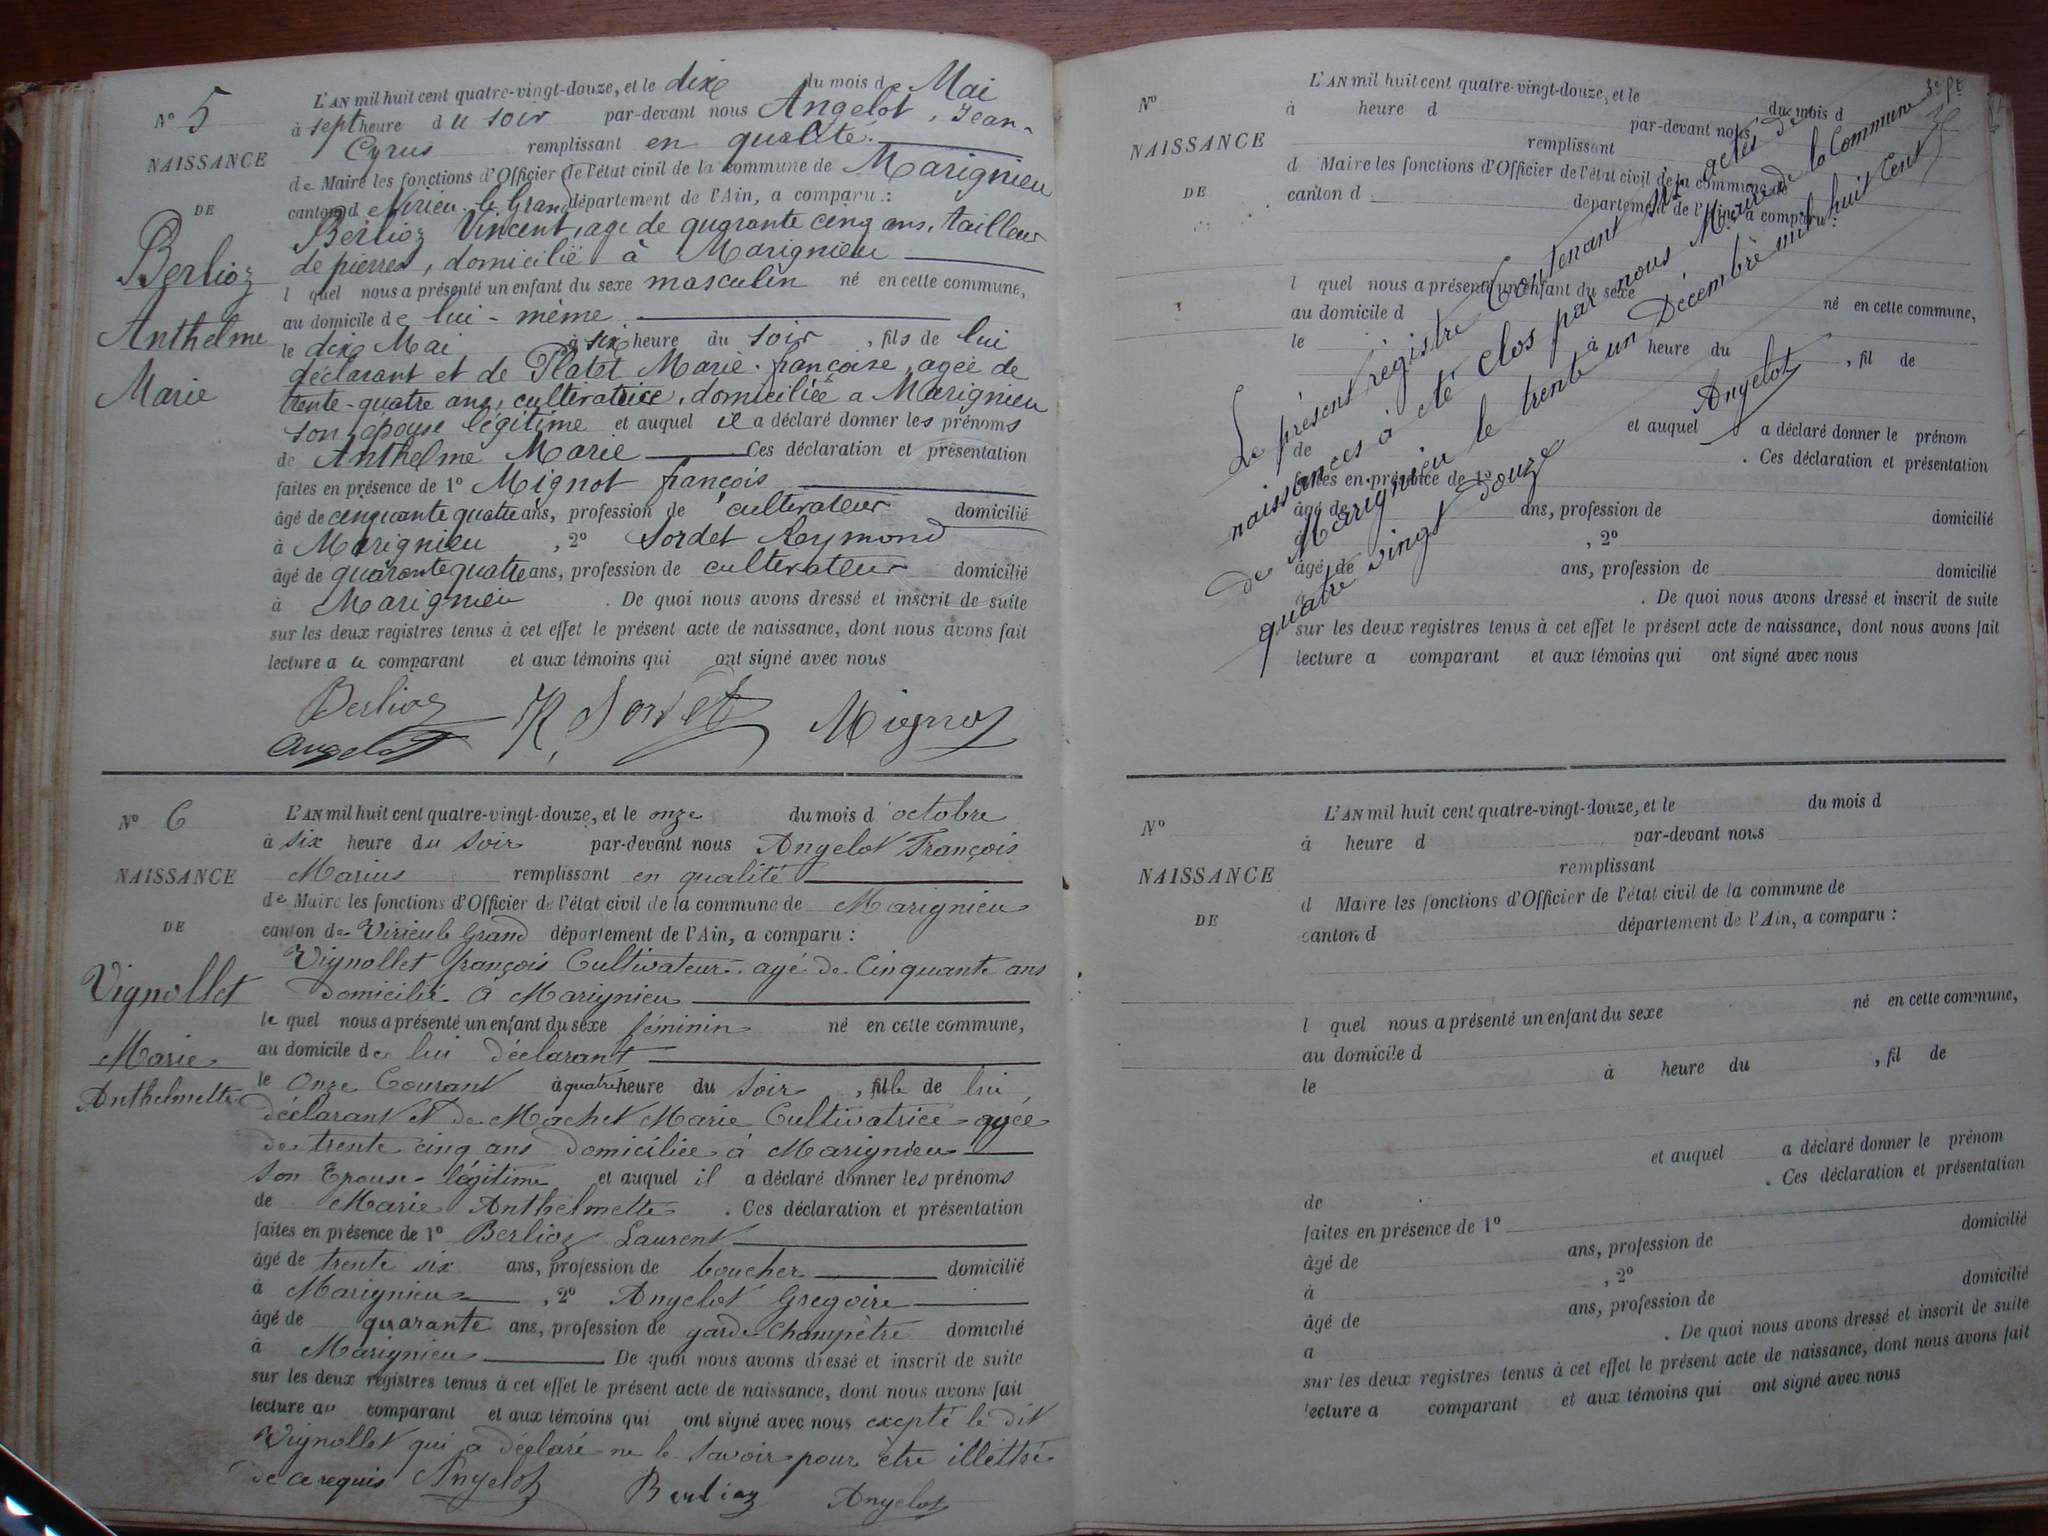 N° 5
NAISSANCE
DE
Berlioz
Anthelme
Marie
L'AN mil huit cent quatre-vingt-douze, et le dix du mois de Mai
à sept heure du soir par-devant nous Angelot, Jean-
Cyrus remplissant en qualité
de Maire les fonctions d'Officier de l'état civil de la commune de Marignieu
canton d Virieu-le-Grand département de l'Ain, a comparu :
Berlioz Vincent, age de quarante cinq ans, tailleur
de pierres, domicilié à Marignieu
l quel nous a présenté un enfant du sexe masculin né en cette commune,
au domicile de lui-même
le dix Mai à six heure du soir, fils de lui
déclarant et de Platet Marie-françoise, agée de
trente-quatre ans, cultivatrice, domiciliée a Marignieu
son épouse légitime et auquel il a déclaré donner les prénoms
de Anthelme Marie Ces déclaration et présentation
faites en présence de 1° Mignot françois
âgé de cinquante quatre ans, profession de cultivateur domicilié
à Marignieu, 2° Sordet Reymond
âgé de quarante quatre ans, profession de cultivateur domicilié
à Marignieu. De quoi nous avons dressé et inscrit de suite
sur les deux registres tenus à cet effet le présent acte de naissance, dont nous avons fait
lecture a u comparant et aux témoins qui ont signé avec nous
Berlioz R. Sordet Mignot
Angelot
N° 6
NAISSANCE
DE
Vignollet
Marie
Anthelmette
L'AN mil huit cent quatre-vingt-douze, et le onze du mois d'octobre
à six heure du soir par-devant nous Angelot François
Marius remplissant en qualité
de Maire les fonctions d'Officier de l'état civil de la commune de Marignieu
canton de Virieu le Grand département de l'Ain, a comparu :
Vignollet françois Cultivateur agé de Cinquante ans
domicilié à Marignieu
le quel nous a présenté un enfant du sexe féminin né en cette commune,
au domicile de lui déclarant
le Onze Courant à quatre heure du soir, fille de lui
déclarant et de Machet Marie Cultivatrice agée
de trente cinq ans domiciliée à Marignieu
son Epouse légitime et auquel il a déclaré donner les prénoms
de Marie Anthelmette. Ces déclaration et présentation
faites en présence de 1° Berlioz Laurent
âgé de trente six ans, profession de boucher domicilié
à Marignieu, 2° Angelot Gregoire
âgé de quarante ans, profession de garde Champêtre domicilié
à Marignieu De quoi nous avons dressé et inscrit de suite
sur les deux registres tenus à cet effet le présent acte de naissance, dont nous avons fait
lecture au comparant et aux témoins qui ont signé avec nous excepté le dit
Vignollet qui a déclaré ne le savoir pour être illettré
de ce requis Angelot Berlioz Angelot
N°
NAISSANCE
DE
L'AN mil huit cent quatre-vingt-douze, et le du mois d
à heure d par-devant nous
remplissant
d Maire les fonctions d'Officier de l'état civil de la commune de
canton d département de l'Ain, a comparu :
l quel nous a présenté un enfant du sexe né en cette commune,
au domicile d
le à heure du , fil de
et auquel a déclaré donner le prénom
de . Ces déclaration et présentation
faites en présence de 1°
âgé de ans, profession de domicilié
à , 2°
âgé de ans, profession de domicilié
à . De quoi nous avons dressé et inscrit de suite
sur les deux registres tenus à cet effet le présent acte de naissance, dont nous avons fait
lecture a comparant et aux témoins qui ont signé avec nous
Le présent régistre Contenant six actes de
naissances à été clos par nous Maire de la Commune
de Marignieu le trente un Décembre mil huit Cent
quatre vingt douze
Angelot
N°
NAISSANCE
DE
L'AN mil huit cent quatre-vingt-douze, et le du mois d
à heure d par-devant nous
remplissant
d Maire les fonctions d'Officier de l'état civil de la commune de
canton d département de l'Ain, a comparu :
l quel nous a présenté un enfant du sexe né en cette commune,
au domicile d
le à heure du , fil de
et auquel a déclaré donner le prénom
de . Ces déclaration et présentation
faites en présence de 1°
âgé de ans, profession de domicilié
à , 2°
âgé de ans, profession de domicilié
a . De quoi nous avons dressé et inscrit de suite
sur les deux registres tenus à cet effet le présent acte de naissance, dont nous avons fait
lecture a comparant et aux témoins qui ont signé avec nous